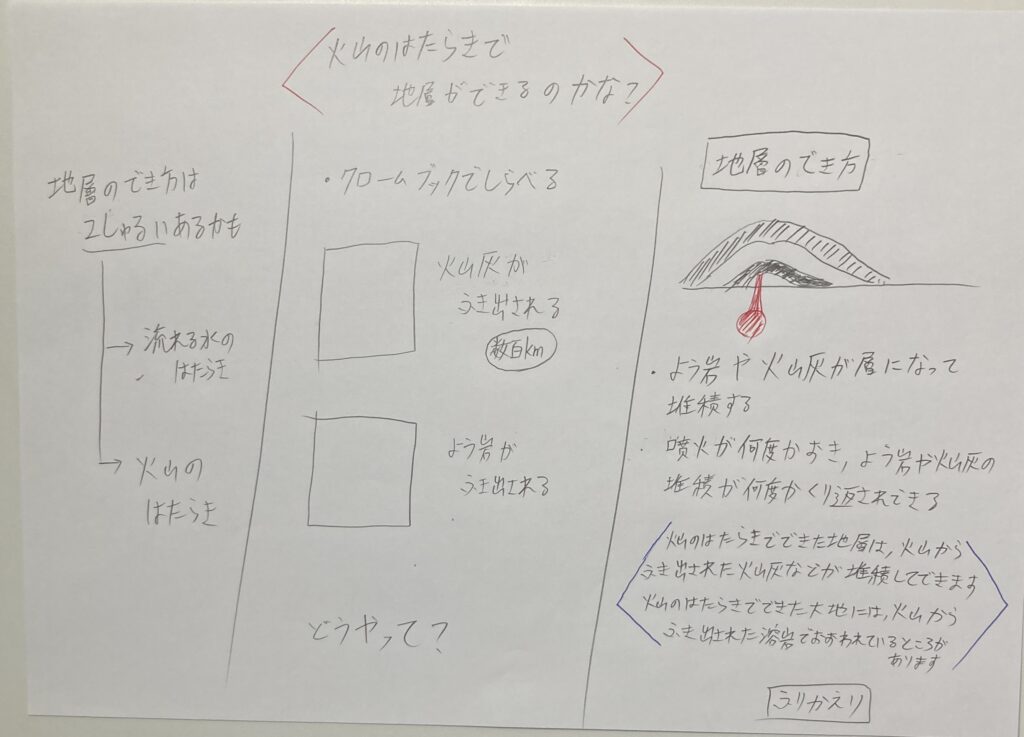 火山のはたらきで
地層ができるのかな？
地層のでき方は
2しゅるいあるかも
流れる水の
はたらき
火山の
はたらき
・クロームブックでしらべる
火山灰が
ふき出される
数百km
よう岩が
ふき出される
どうやって？
地層のでき方
・よう岩や火山灰が層になって
堆積する
・噴火が何度かおき，よう岩や火山灰の
堆積が何度かくり返されできる
火山のはたらきでできた地層は，火山から
ふき出された火山灰などが堆積してできます
火山のはたらきでできた大地には，火山から
ふき出された溶岩でおおわれているところが
あります
ふりかえり